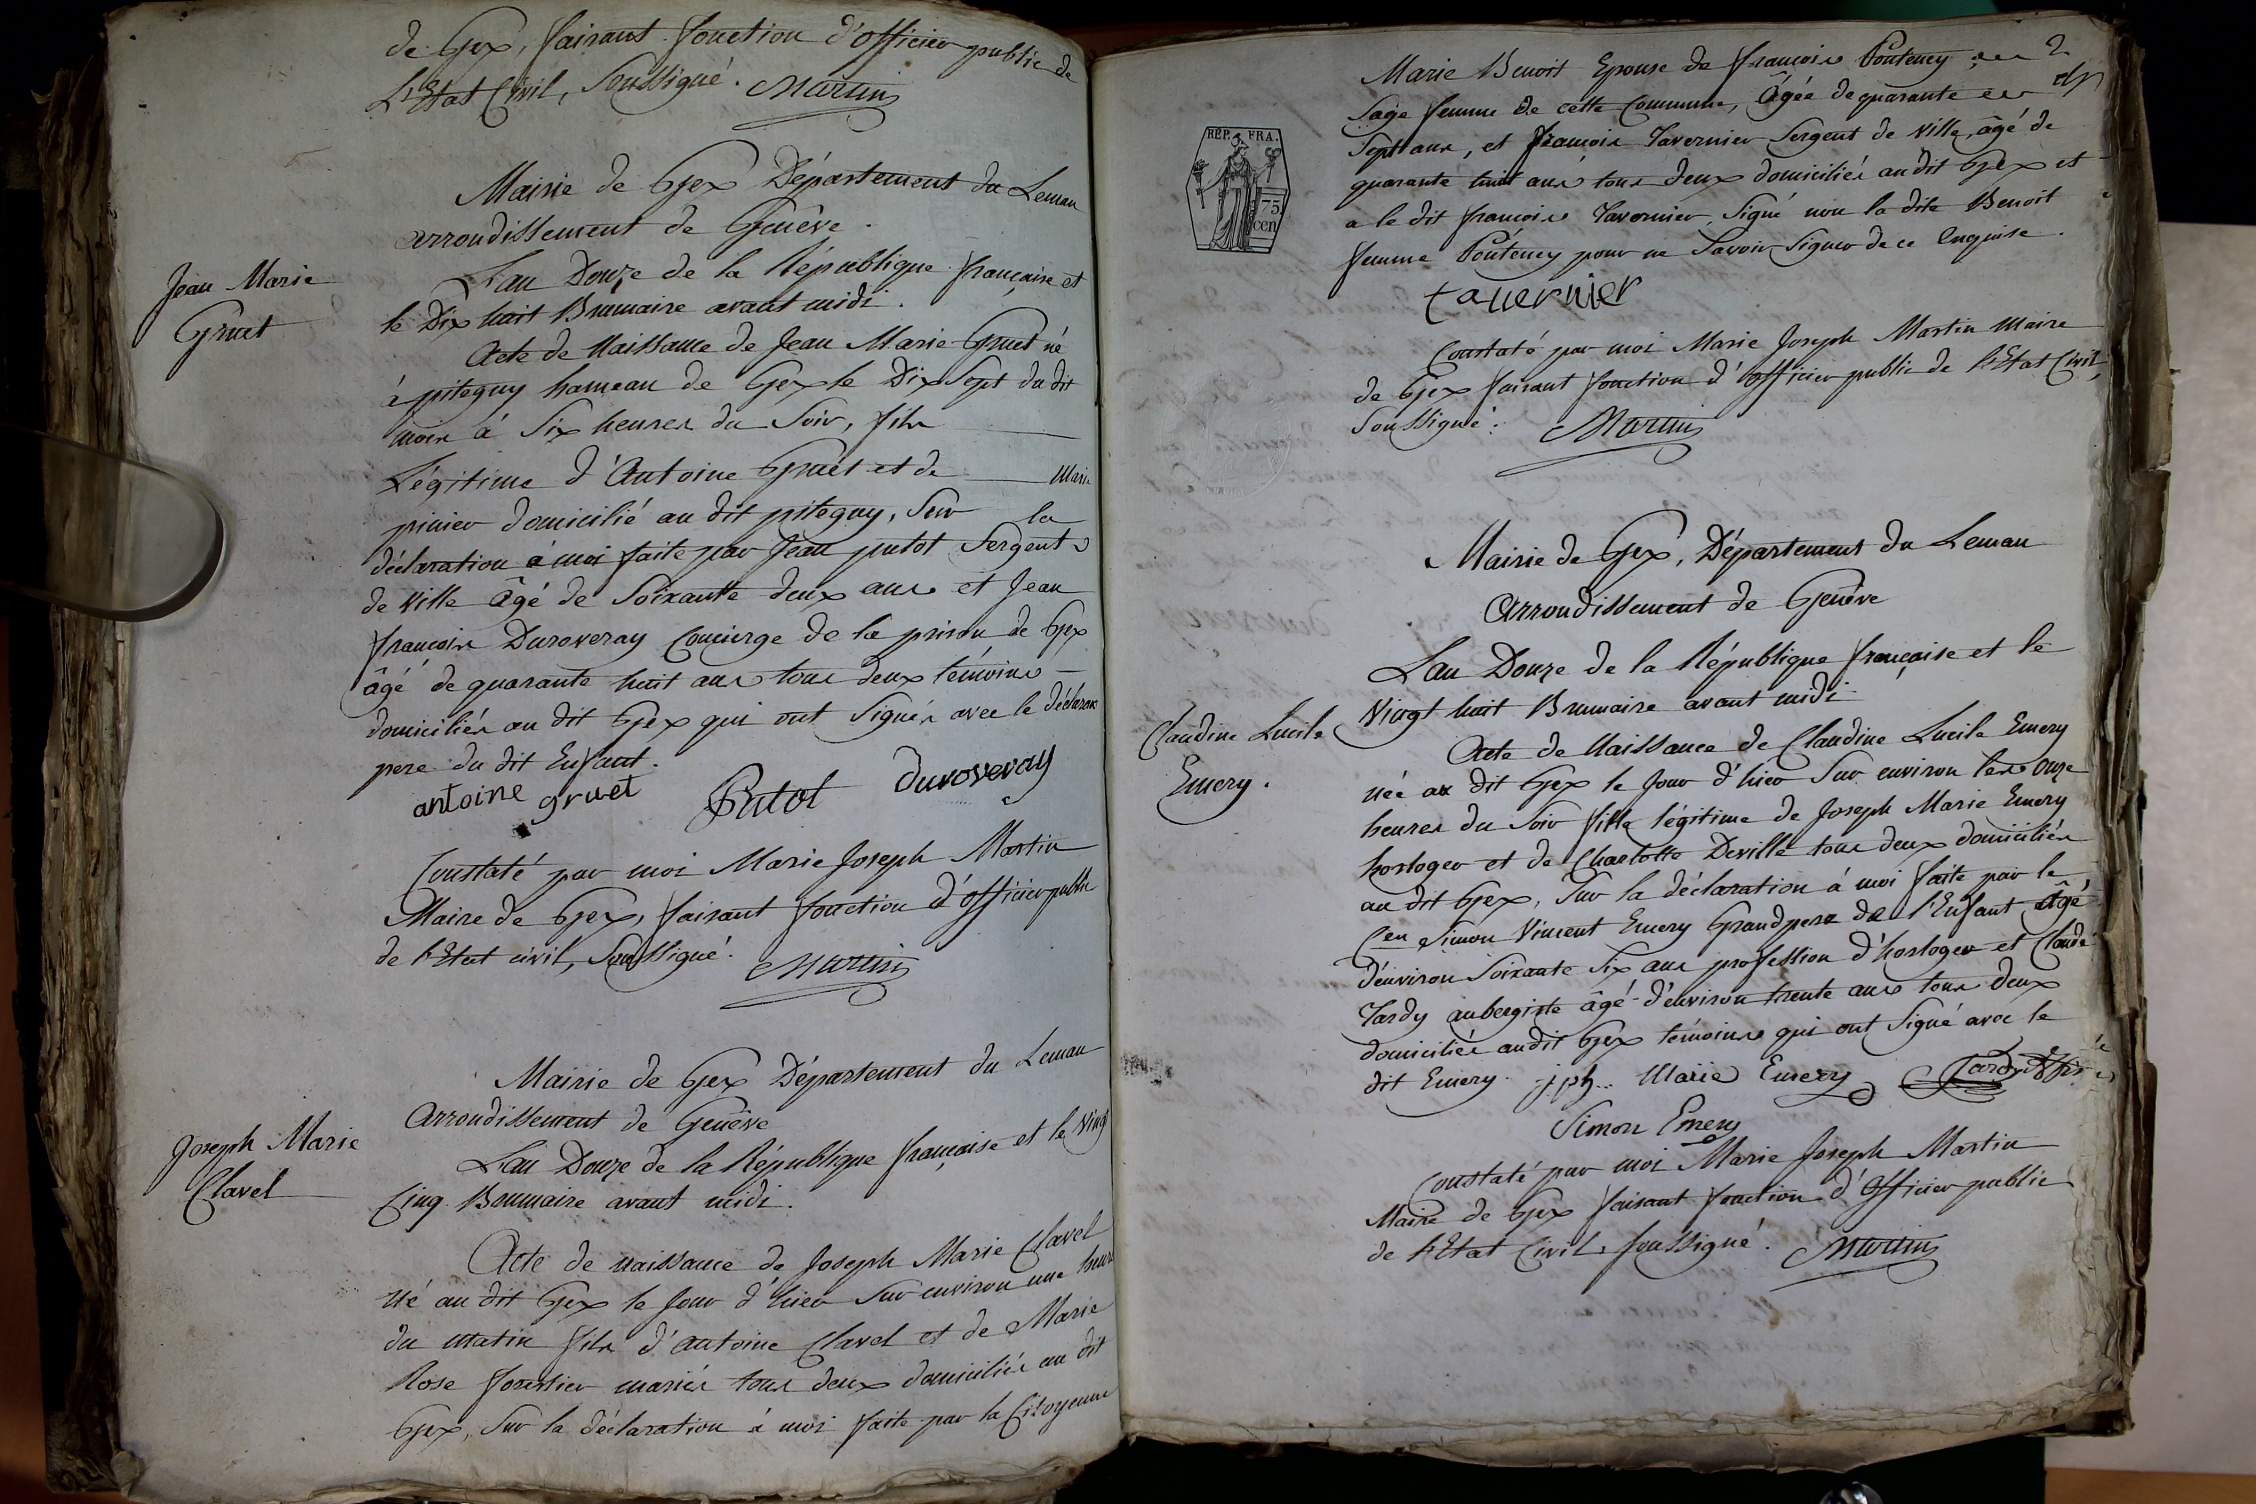 de Gex, faisant fonction d'officier public de
L'Etat Civil, Soussigné. Martin
Mairie de Gex Département du Leman
arrondissement de Genève.
Jean Marie
Gruet
L'an Douze de la République française et
le Dix huit Brumaire avant midi.
Acte de Naissance de Jean Marie Gruet né
à pitegny hameau de Gex le Dix Sept du dit
mois à Six heures du Soir, fils
Légitime d'Antoine Gruet et de Marie
pinier domicilié au dit pitegny, Sur la
déclaration à moi faite par Jean putot Sergent
de Ville âgé de Soixante deux ans et Jean
françois Duroveray Concierge de la prison de Gex
âgé de quarante huit ans tous deux témoins
domiciliés au dit Gex qui ont Signés avec le déclarant
pere du dit Enfant.
antoine gruet Putot Duroveray
Constaté par moi Marie Joseph Martin
Maire de Gex, faisant fonction d'officier public
de l'Etat civil, Soussigné. Martin
Mairie de Gex Département du Leman
Arrondissement de Genève
Joseph Marie
Clavel
L'an Douze de la République française et le Vingt
Cinq Brumaire avant midi.
Acte de naissance de Joseph Marie Clavel
né au dit Gex le Jour d'hier Sur environ une heure
du matin fils d'antoine Clavel et de Marie
Rose forestier mariés tous deux domiciliés au dit
Gex, Sur la déclaration à moi faite par la Citoyenne
REP. FRA.
75
cen
Marie Benoit Epouse de françois Ponteney 2
Sage femme de cette Commune, Agée de quarante
Sept ans, et françois Tavernier Sergent de Ville, âgé de
quarante huit ans tous deux domiciliés au dit Gex et
a le dit françois Tavernier Signé non la dite Benoit
femme Ponteney pour ne Savoir Signer de ce Enquise.
tauernier
Constaté par moi Marie Joseph Martin Maire
de Gex faisant fonction d'officier public de l'Etat Civil,
Soussigné. Martin
Mairie de Gex, Département du Leman
Arrondissement de Genève
L'an Douze de la République française et le
Vingt huit Brumaire avant midi
Claudine Lucile
Emery.
Acte de Naissance de Claudine Lucile Emery
née au dit Gex le Jour d'hier Sur environ les Onze
heures du Soir fille légitime de Joseph Marie Emery
horloger et de Charlotte Deville tous deux domiciliés
au dit Gex, Sur la déclaration à moi faite par le
Cen Simon Vincent Emery Grandpere de l'Enfant Agé
d'environ Soixante Six ans profession d'horloger et Claude
Tardy aubergiste âgé d'environ trente ans tous deux
domiciliés audit Gex témoins qui ont Signé avec le
dit Emery. jph. Marie Emery Tardy
Simon Emery
Constaté par moi Marie Joseph Martin
Maire de Gex faisant fonction d'Officier public
de l'Etat Civil, soussigné. Martin